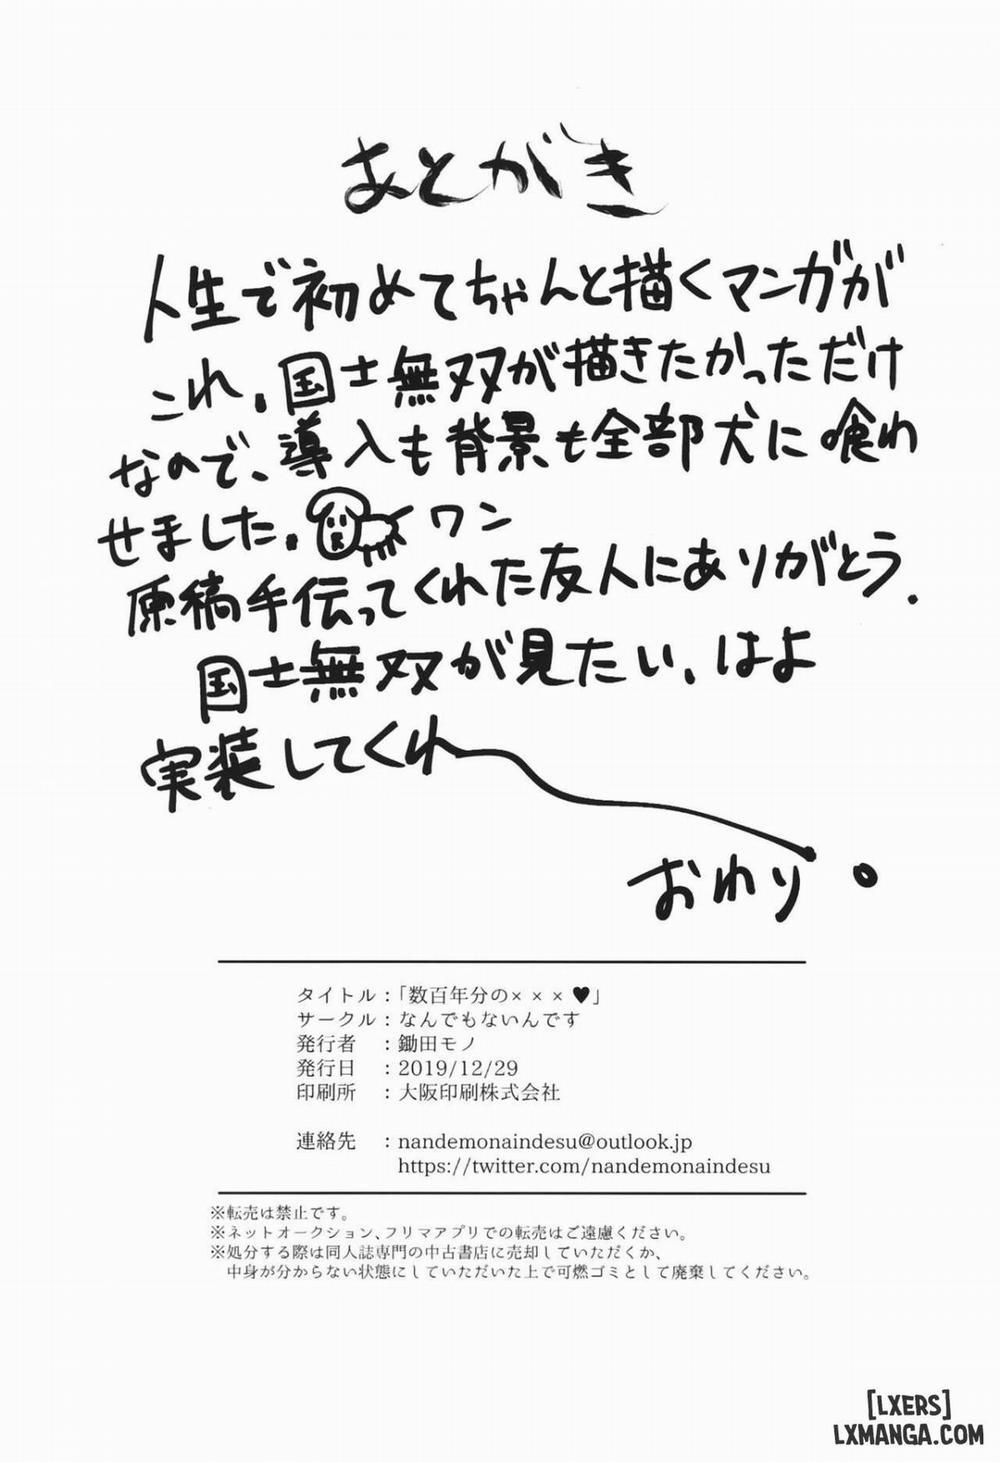 あとがき
人生で初めてちゃんと描くマンガが
これ。国士無双が描きたかっただけ
なので、導入も背景も全部犬に喰わ
せました。ワン
原稿手伝ってくれた友人にありがとう。
国士無双が見たい。はよ
実装してくれ
おわり。
タイトル:「数百年分の×××♥」
サークル:なんでもないんです
発行者 :鋤田モノ
発行日 :2019/12/29
印刷所 :大阪印刷株式会社
連絡先 :nandemonaindesu@outlook.jp
https://twitter.com/nandemonaindesu
※転売は禁止です。
※ネットオークション、フリマアプリでの転売はご遠慮ください。
※処分する際は同人誌専門の中古書店に売却していただくか、
中身が分からない状態にしていただいた上で可燃ゴミとして廃棄してください。
[LXERS]
LXMANGA.COM